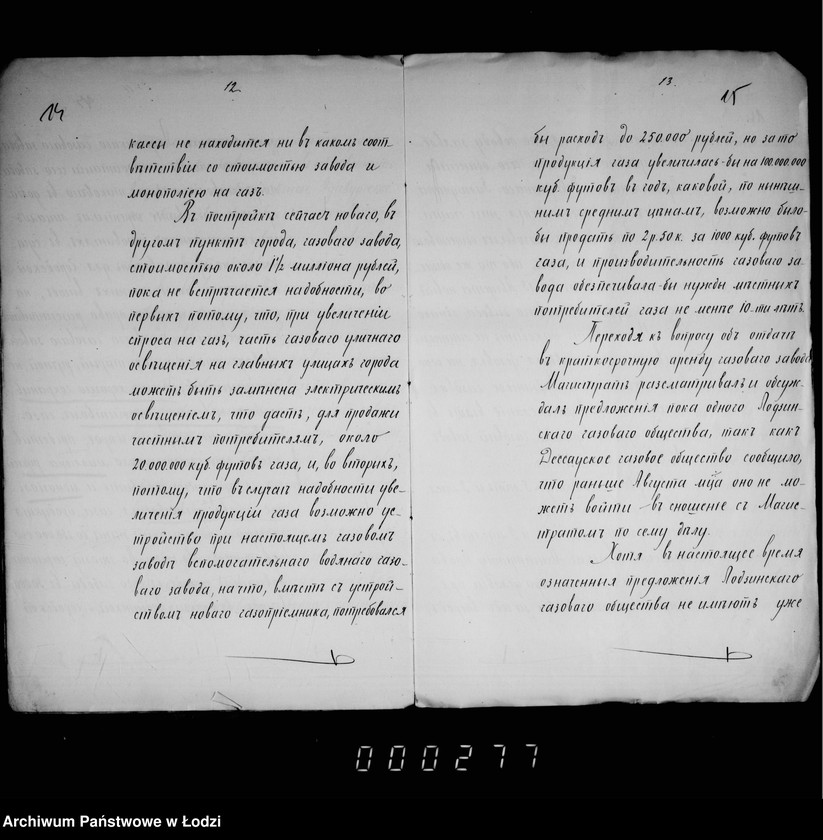 12
14
кассы не находится ни въ какомъ соот-
вѣтствіи со стоимостью завода и
монополіею на газъ.
Въ постройкѣ сейчас новаго, въ
другомъ пунктѣ города, газоваго завода,
стоимостью около 1½ милліона рублей,
пока не встрѣчается надобности, во
первыхъ потому, что, при увеличеніи
спроса на газъ, часть газоваго уличнаго
освѣщенія на главныхъ улицахъ города
можетъ быть замѣнена электрическимъ
освѣщеніемъ, что дастъ, для продажи
частнымъ потребителямъ, около
20.000.000 куб. футовъ газа, и, во вторыхъ,
потому, что въ случаѣ надобности уве-
личенія продукціи газа возможно ус-
тройство при настоящемъ газовомъ
заводѣ вспомогательнаго водянаго газо-
ваго завода, на что, вмѣстѣ съ устрой-
ствомъ новаго газопріемника, потребовался
13.
15
бы расходъ до 250.000 рублей, но за то
продукція газа увеличилась-бы на 100.000.000
куб. футовъ въ годъ, каковой, по нынѣш-
нимъ среднимъ цѣнамъ, возможно было-
бы продать по 2 р. 50 к. за 1000 куб. футовъ
газа, и производительность газоваго за-
вода обезпечивала-бы нужды мѣстныхъ
потребителей газа не менѣе 10-ти лѣтъ.
Переходя къ вопросу объ отдачѣ
въ краткосрочную аренду газоваго завода
Магистратъ разсматривалъ и обсуж-
далъ предложенія пока одного Лодзин-
скаго газоваго общества, такъ какъ
Дессауское газовое общество сообщило,
что раньше Августа мѣца оно не мо-
жетъ войти въ сношеніе съ Магис-
тратомъ по сему дѣлу.
Хотя въ настоящее время
означенныя предложенія Лодзинскаго
газоваго общества не имѣютъ уже
000277
Archiwum Państwowe w Łodzi